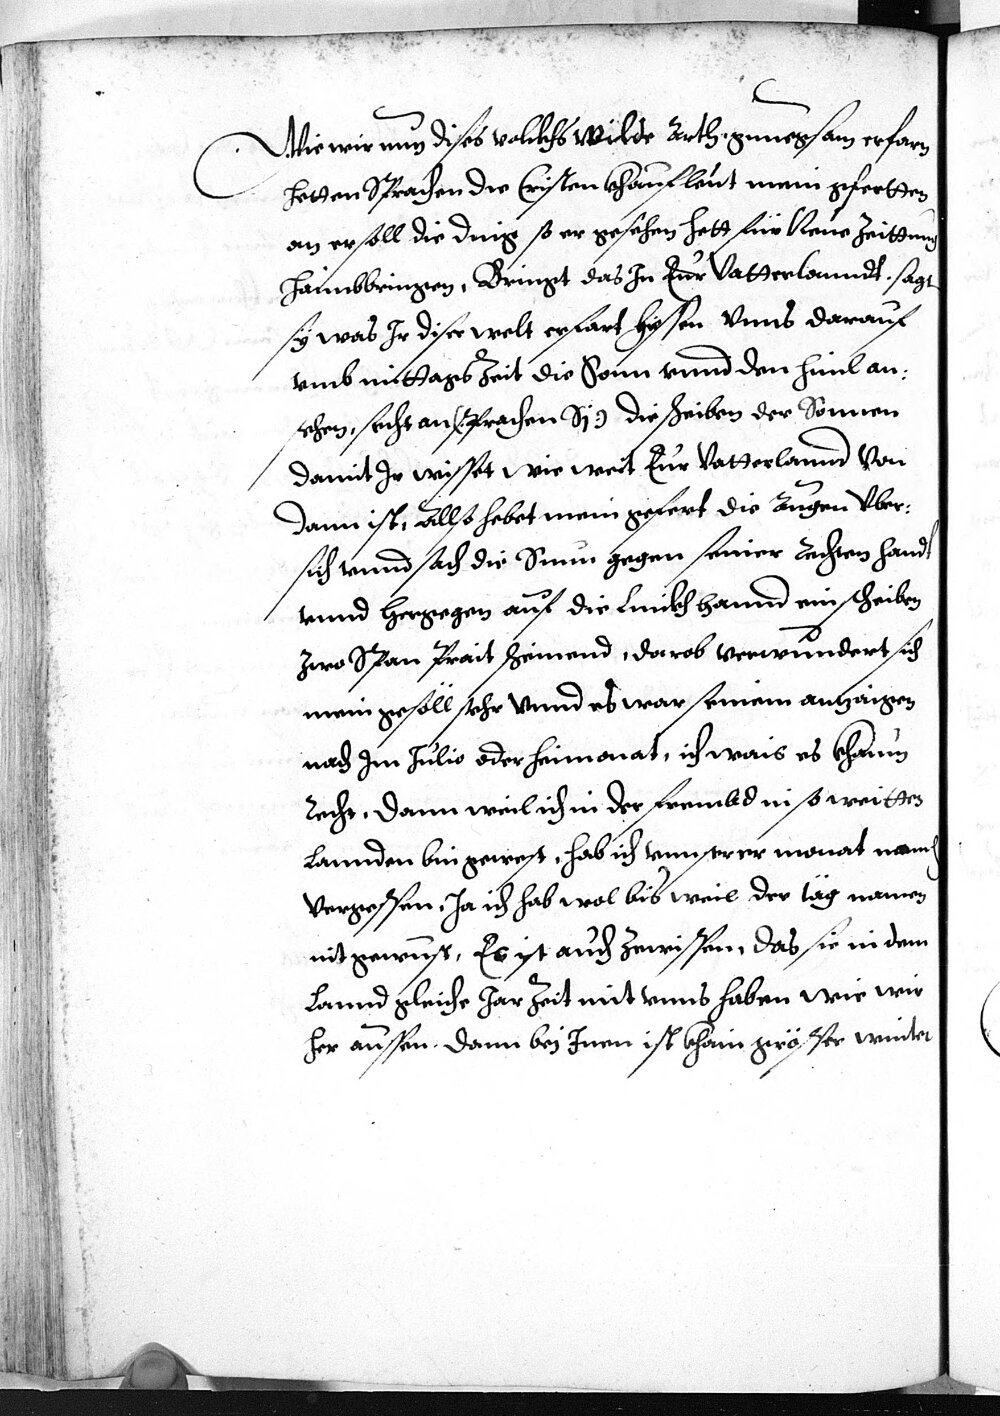 Wie wir nun dises volckhs wilde Arth gnuegsam erfarn
hetten Sprachen die Cristen khaufleut mein gfertten
an er soll die ding so er gesehen hett für Neue Zeittung
haimbbringen, Bringt das In Eur Vatterlanndt, sagt
sÿ was Ir diser welt erfart hiessen Unns darauf
umb mittags Zeit die Sonn unnd den himl an:
sehen, secht an (sprachen Sÿ) die scheiben der Sonnen
damit Ir wisset wie weit Eur Vatterlannd von
dann ist, Allso hebet mein gefert die Augen Uber:
sich unnd sach die Sunn gegen seiner rechten handt
unnd hergegen auf die Linckh hannd ein scheiben
zwo Span Prait scheinend, darob verwundert sich
mein gesöll sehr Unnd es war seinem anzaigen
nach Im Julio oder heimonat, ich wais es khaum
recht, Dann weil ich in der frembd in so weitten
Lannden bin gewest, hab ich unnserer monat namen
vergessen, Ja ich hab wol bisweil der täg namen
nit gewust, Es ist auch zewissen, das sie in dem
Lannd gleiche Jar Zeit mit unns haben wie wir
her aussen. dann bej Inen ist khain grösser winter